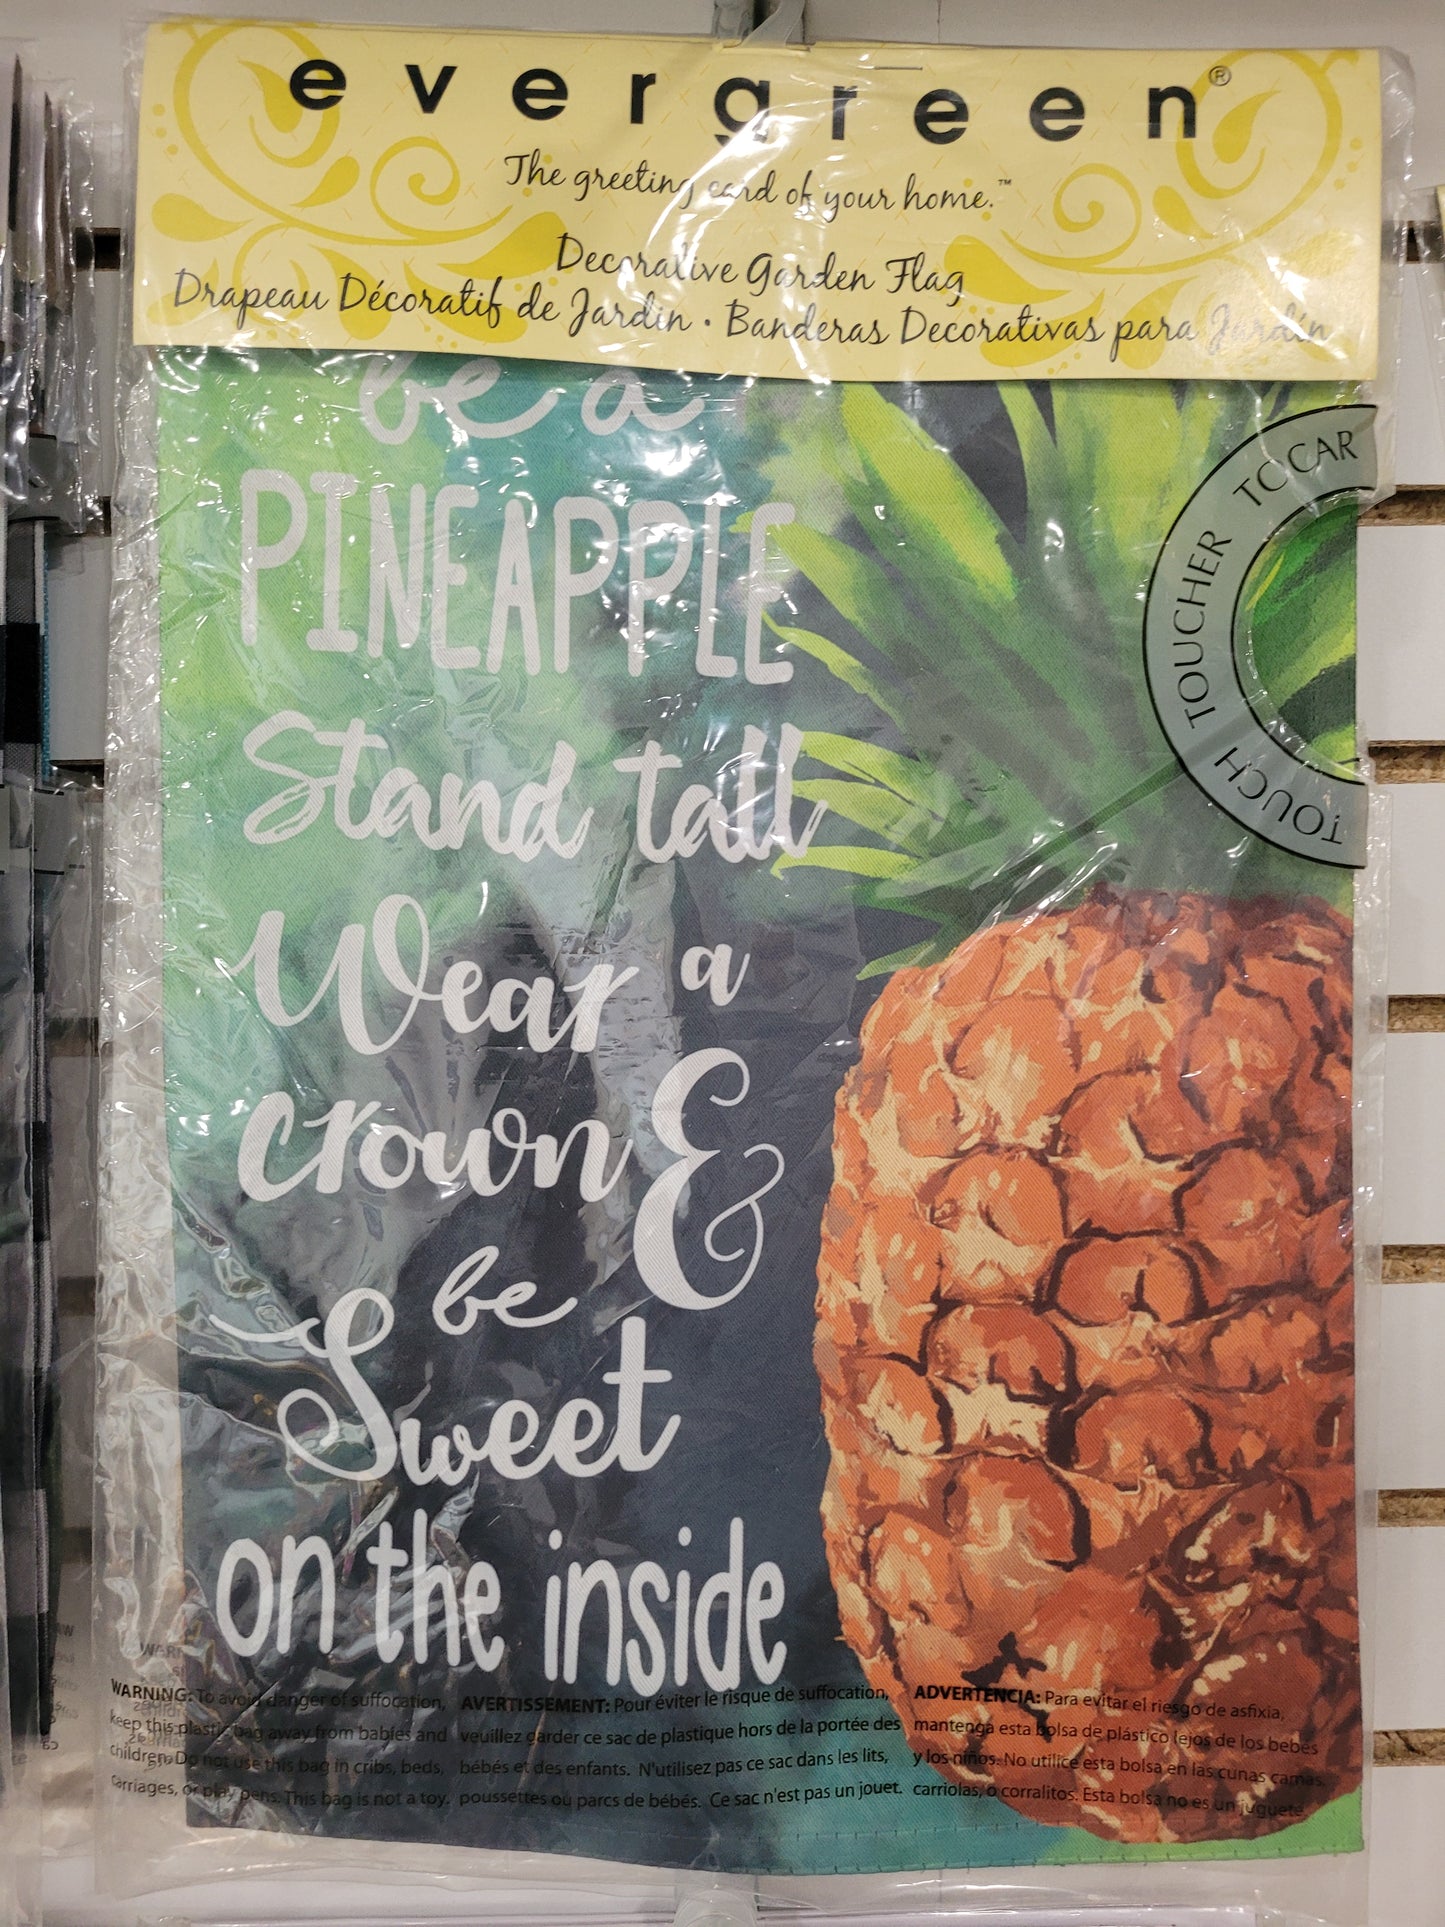 evergreen®
The greeting card of your home.™
Decorative Garden Flag
Drapeau Décoratif de Jardin • Banderas Decorativas para Jardín
be a
PINEAPPLE
Stand tall
Wear a
crown &
be
Sweet
on the inside
TOUCH TOUCHER TOCAR
WARNING: To avoid danger of suffocation,
keep this plastic bag away from babies and
children. Do not use this bag in cribs, beds,
carriages, or play pens. This bag is not a toy.
AVERTISSEMENT: Pour éviter le risque de suffocation,
veuillez garder ce sac de plastique hors de la portée des
bébés et des enfants. N'utilisez pas ce sac dans les lits,
poussettes ou parcs de bébés. Ce sac n'est pas un jouet.
ADVERTENCIA: Para evitar el riesgo de asfixia,
mantenga esta bolsa de plástico lejos de los bebés
y los niños. No utilice esta bolsa en las cunas camas,
carriolas, o corralitos. Esta bolsa no es un juguete.